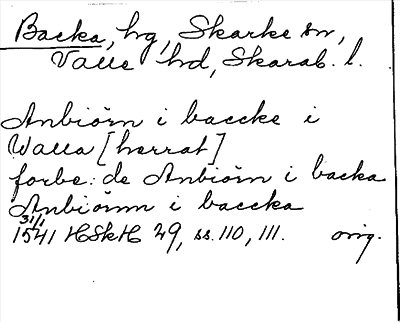 Backa, hg, Skarke sn,
Valle hd, Skarab. l.
Anbiörn i baccke i
Walla [herrat]
forbe: de Anbiörn i backa
Anbiömn i baccka
31/1
1541 HSkH 29, ss. 110, 111. orig.